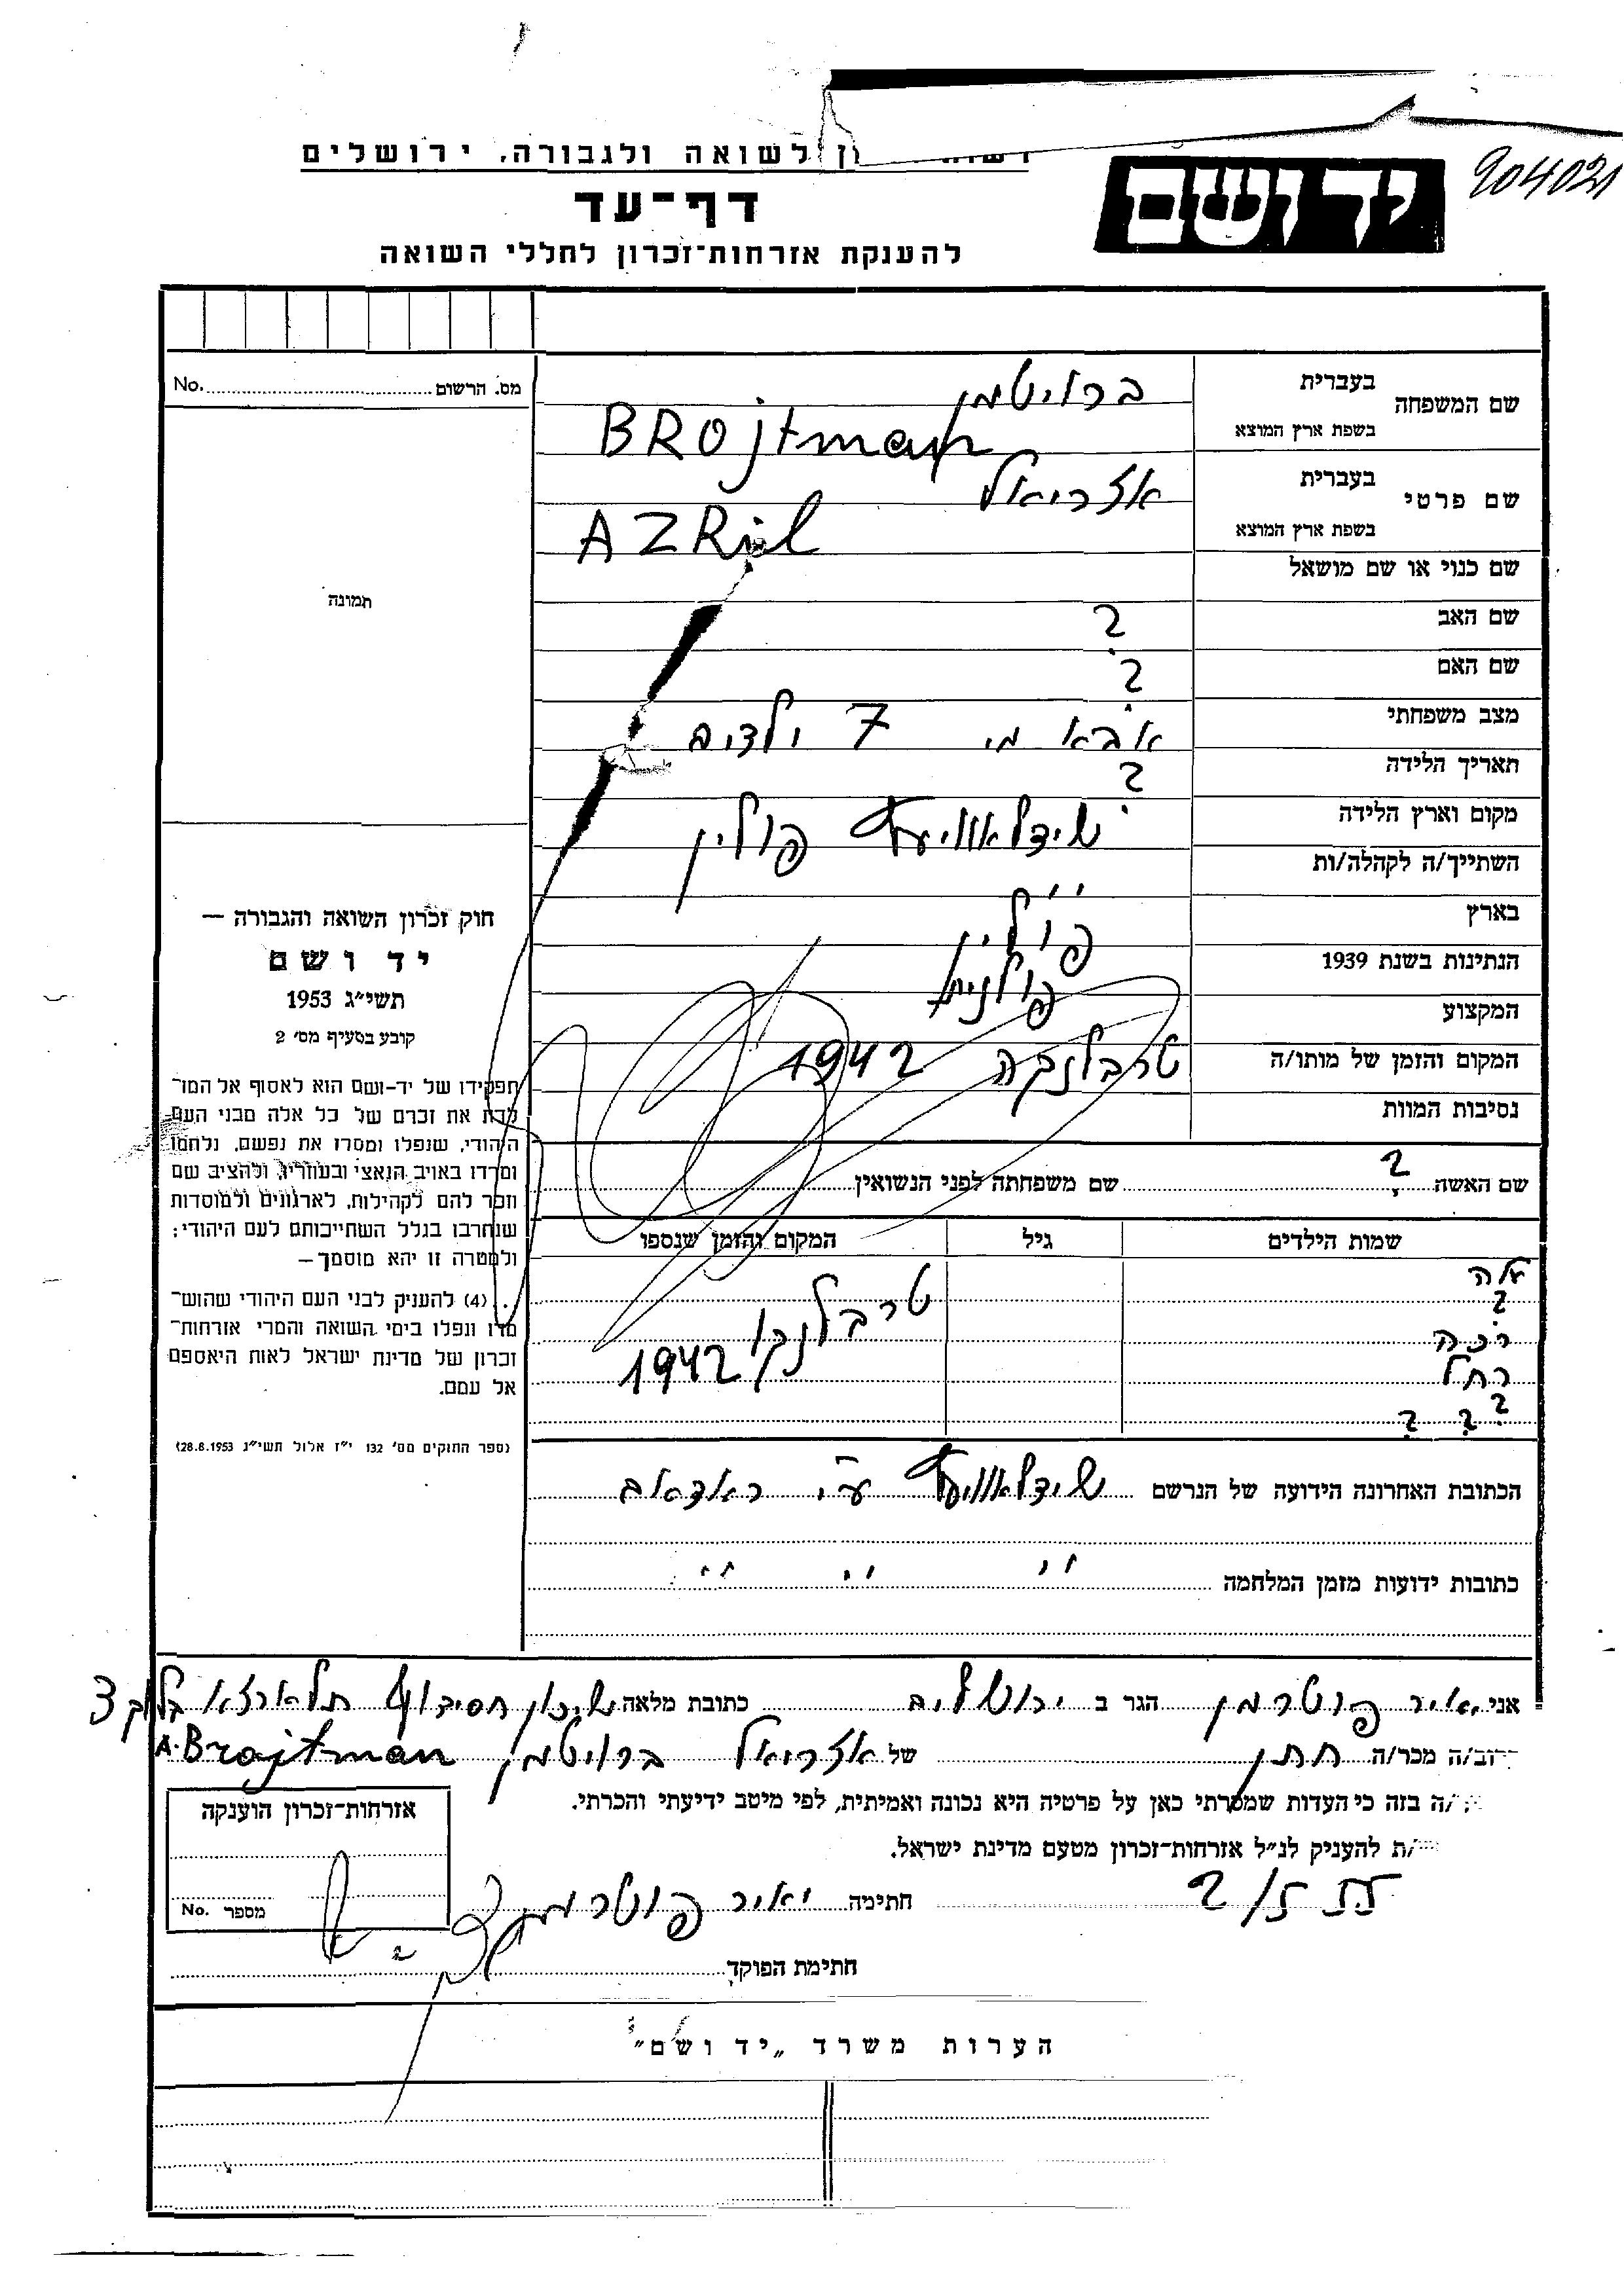 לשואה ולגבורה, ירושלים
דף-עד
להענקת אזרחות-זכרון לחללי השואה
יד ושם
904021
No. מס. הרשום
תמונה
שם המשפחה
בעברית ברויטמן
בשפת ארץ המוצא BROjtman
שם פרטי
בעברית אזריאל
בשפת ארץ המוצא AZRiel
שם כנוי או שם מושאל
שם האב ?
שם האם ?
מצב משפחתי אבא מי 7 ילדים
תאריך הלידה ?
מקום וארץ הלידה שידלאוויעץ פולין
השתייך/ה לקהלה/ות " "
בארץ פולין
הנתינות בשנת 1939 פולנית
המקצוע
המקום והזמן של מותו/ה טרבלנקה 1942
נסיבות המוות
שם האשה ? שם משפחתה לפני הנשואין
שמות הילדים גיל המקום והזמן שנספו
?
רחל
? ? ?
טרבלנקו
1942
חוק זכרון השואה והגבורה —
יד ושם
תשי״ג 1953
קובע בסעיף מס׳ 2
תפקידו של יד-ושם הוא לאסוף אל המו-
לדת את זכרם של כל אלה מבני העם
היהודי, שנפלו ומסרו את נפשם, נלחמו
ומרדו באויב הנאצי ובעוזריו, ולהציב שם
וזכר להם לקהילות, לארגונים ולמוסדות
שנחרבו בגלל השתייכותם לעם היהודי;
ולמטרה זו יהא מוסמך —
. . (4) להעניק לבני העם היהודי שהוש-
מדו ונפלו בימי השואה והמרי אזרחות-
זכרון של מדינת ישראל לאות היאספם
אל עמם.
(ספר החוקים מס׳ 132 י״ז אלול תשי״ג 28.8.1953)
הכתובת האחרונה הידועה של הנרשם שידלאוויעץ ע״י ראדאם
כתובות ידועות מזמן המלחמה " " "
אני יאיר פוטרמן הגר ב ירושלים כתובת מלאה שיכון חסידוף תלארזא בלוק 3
מכר/ה חתן של אזריאל ברויטמן A. Brojtman
/ה בזה כי העדות שמסרתי כאן על פרטיה היא נכונה ואמיתית, לפי מיטב ידיעתי והכרתי.
/ת להעניק לנ״ל אזרחות-זכרון מטעם מדינת ישראל.
חתימה יאיר פוטרמן
חתימת הפוקד
אזרחות-זכרון הוענקה
No. מספר
הערות משרד „יד ושם"